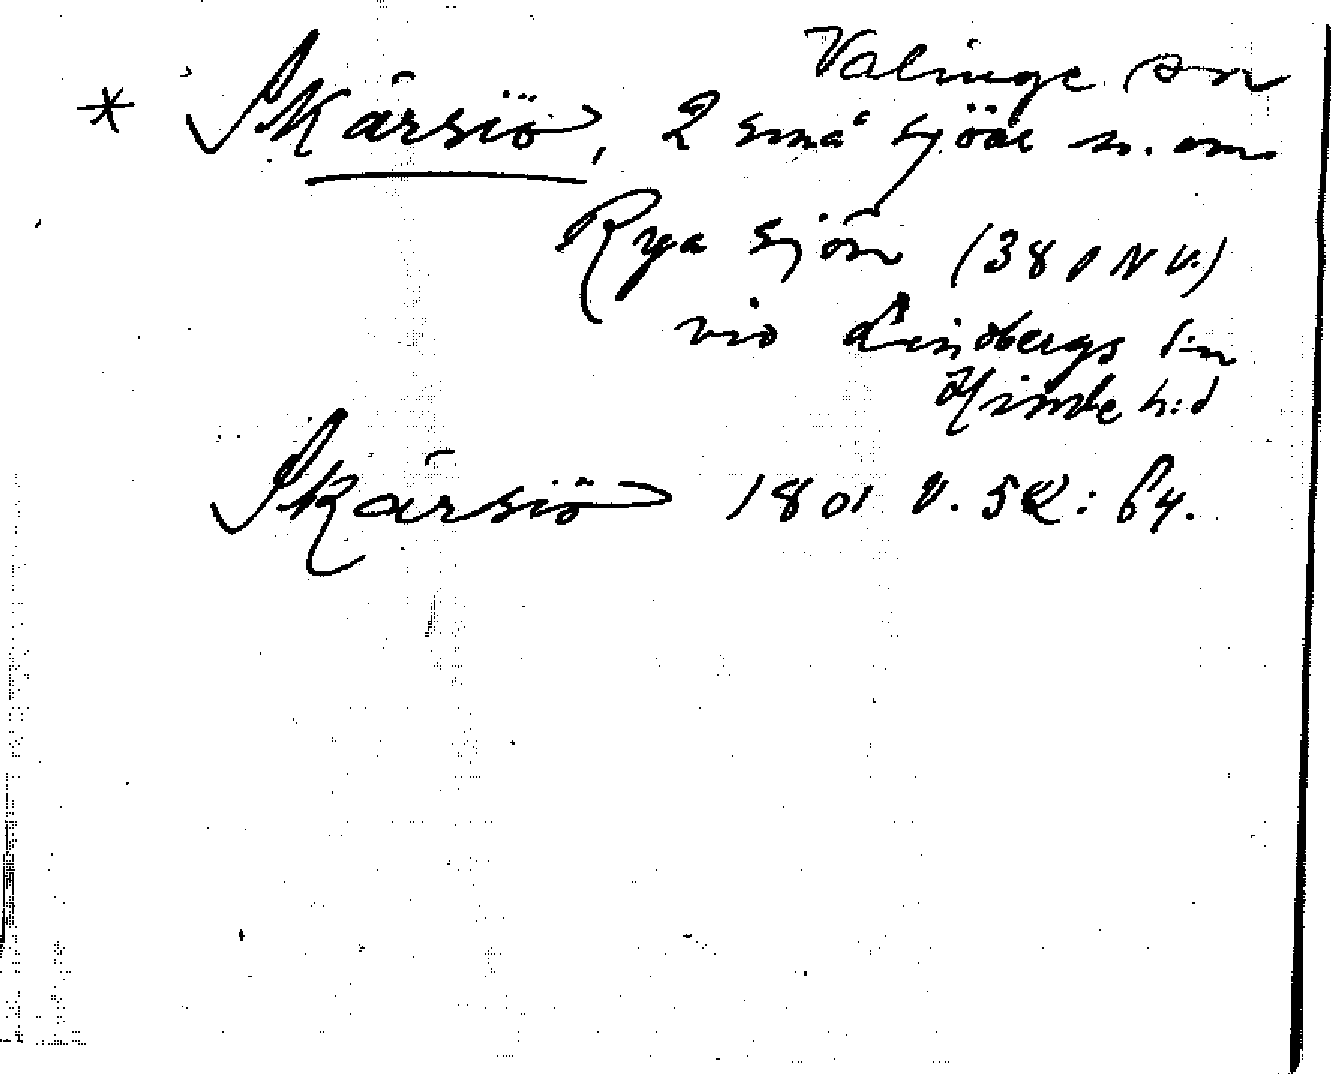 Valinge sn
* Skärsiö, 2 små sjöar n. om
Rya sjön (38 1 NV.)
vid Lindbergs sn
Himle h:d
Skärsiö 1801 V. 52: 64.